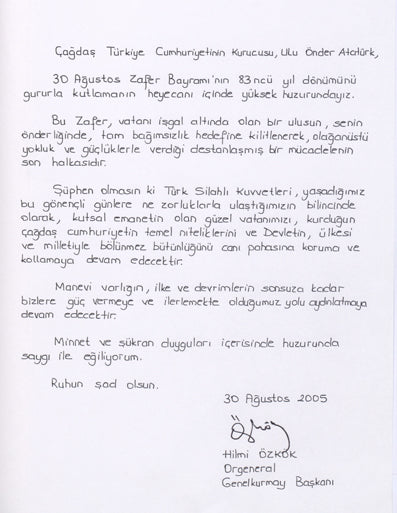 Çağdaş Türkiye Cumhuriyetinin Kurucusu, Ulu Önder Atatürk,
30 Ağustos Zafer Bayramı'nın 83 ncü yıl dönümünü
gururla kutlamanın heyecanı içinde yüksek huzurundayız.
Bu Zafer, vatanı işgal altında olan bir ulusun, senin
önderliğinde, tam bağımsızlık hedefine kilitlenerek, olağanüstü
yokluk ve güçlüklerle verdiği destanlaşmış bir mücadelenin
son halkasıdır.
Şüphen olmasın ki Türk Silahlı Kuvvetleri, yaşadığımız
bu gönençli günlere ne zorluklarla ulaştığımızın bilincinde
olarak, kutsal emanetin olan güzel vatanımızı, kurduğun
çağdaş cumhuriyetin temel niteliklerini ve Devletin, ülkesi
ve milletiyle bölünmez bütünlüğünü canı pahasına koruma ve
kollamaya devam edecektir.
Manevi varlığın, ilke ve devrimlerin sonsuza kadar
bizlere güç vermeye ve ilerlemekte olduğumuz yolu aydınlatmaya
devam edecektir.
Minnet ve şükran duyguları içerisinde huzurunda
saygı ile eğiliyorum.
Ruhun şad olsun.
30 Ağustos 2005
Hilmi ÖZKÖK
Orgeneral
Genelkurmay Başkanı